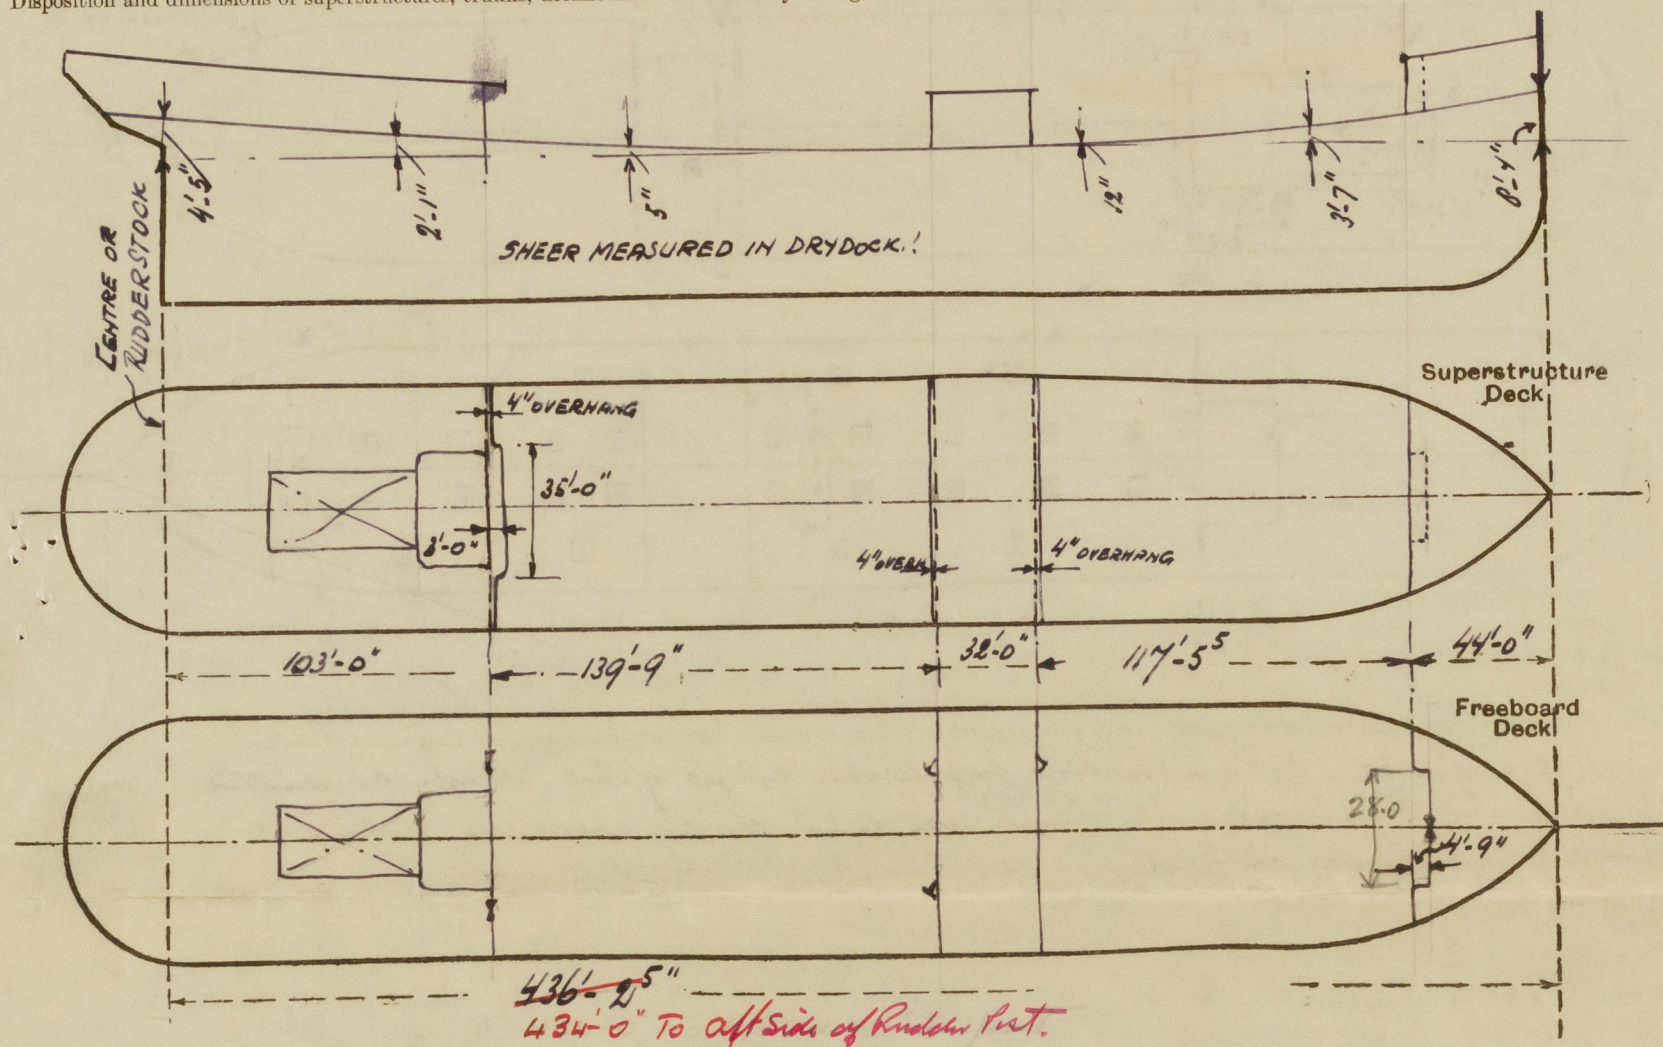 Disposition and dimensions of superstructures, trunks,
4'-5"
2'-1"
5"
12"
3'-7"
8'-4"
SHEER MEASURED IN DRYDOCK.!
CENTRE OR
RUDDERSTOCK
Superstructure
Deck
4" OVERHANG
35'-0"
4" OVERH
4" OVERHANG
103'-0"
139'-9"
32'-0"
117'-5⁵
44'-0"
Freeboard
Deck
28.0
4'-9"
436'-2⁵"
434'-0" To aft Side of Rudder Post.